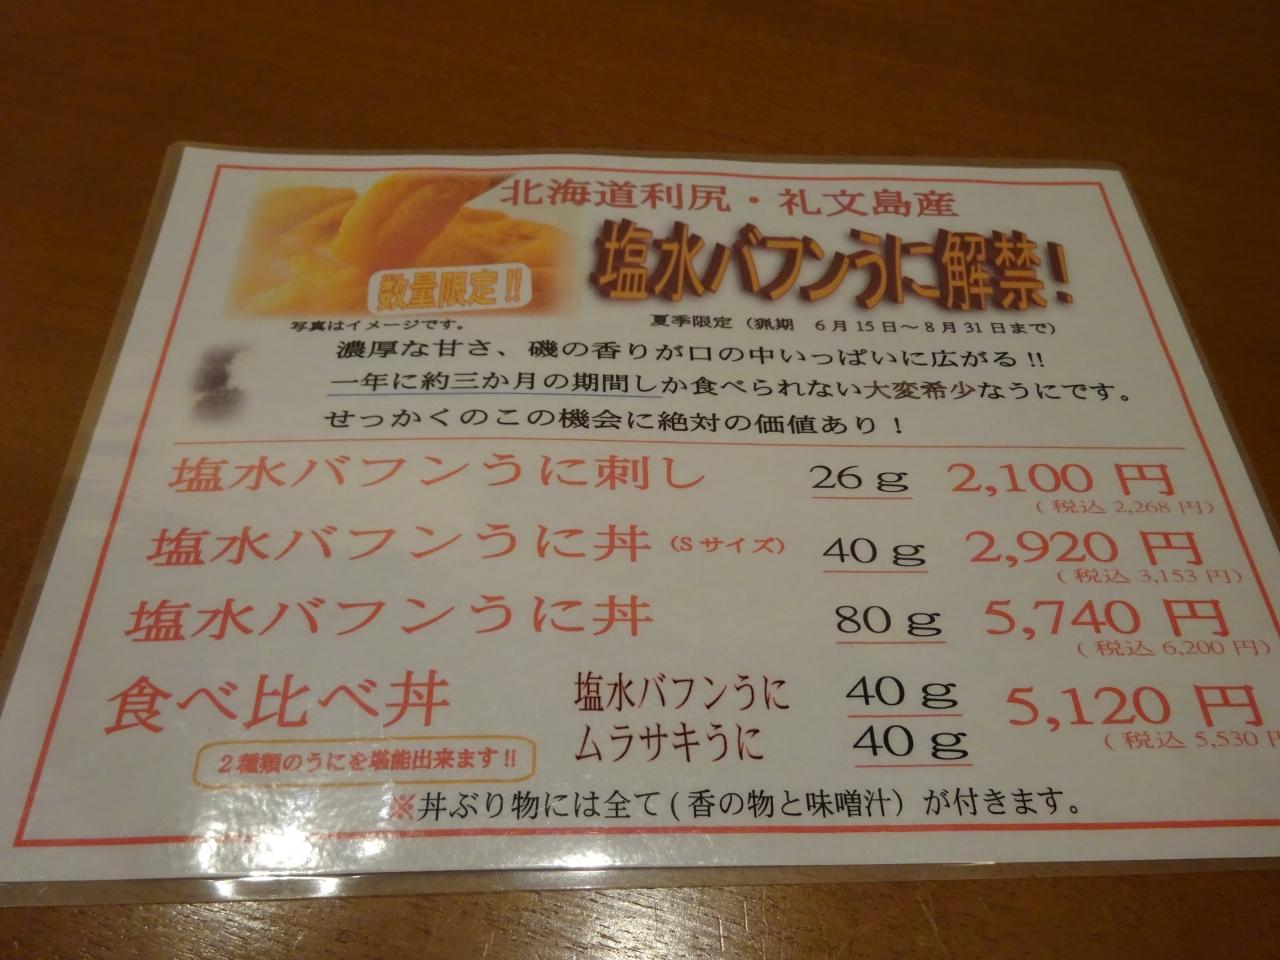 北海道利尻・礼文島産
塩水バフンうに解禁!
数量限定!!
写真はイメージです。
夏季限定（猟期 6月15日～8月31日まで）
濃厚な甘さ、磯の香りが口の中いっぱいに広がる!!
一年に約三か月の期間しか食べられない大変希少なうにです。
せっかくのこの機会に絶対の価値あり！
塩水バフンうに刺し 26g 2,100円
（税込2,268円）
塩水バフンうに丼（Sサイズ） 40g 2,920円
（税込3,153円）
塩水バフンうに丼 80g 5,740円
（税込6,200円）
食べ比べ丼 塩水バフンうに 40g 5,120円
ムラサキうに 40g （税込5,530円
2種類のうにを堪能出来ます!!
※丼ぶり物には全て(香の物と味噌汁）が付きます。